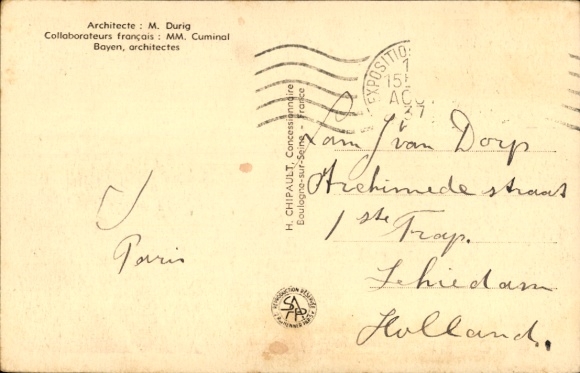 Architecte : M. Durig
Collaborateurs français : MM. Cuminal
Bayen, architectes
EXPOSITIO
15
AO
37
H. CHIPAULT, Concessionnaire
Boulogne-sur-Seine - France
Fam J van Dorp
Archimede straat
1 ste Trap.
Schiedam
Holland.
Paris
REPRODUCTION RÉSERVÉE